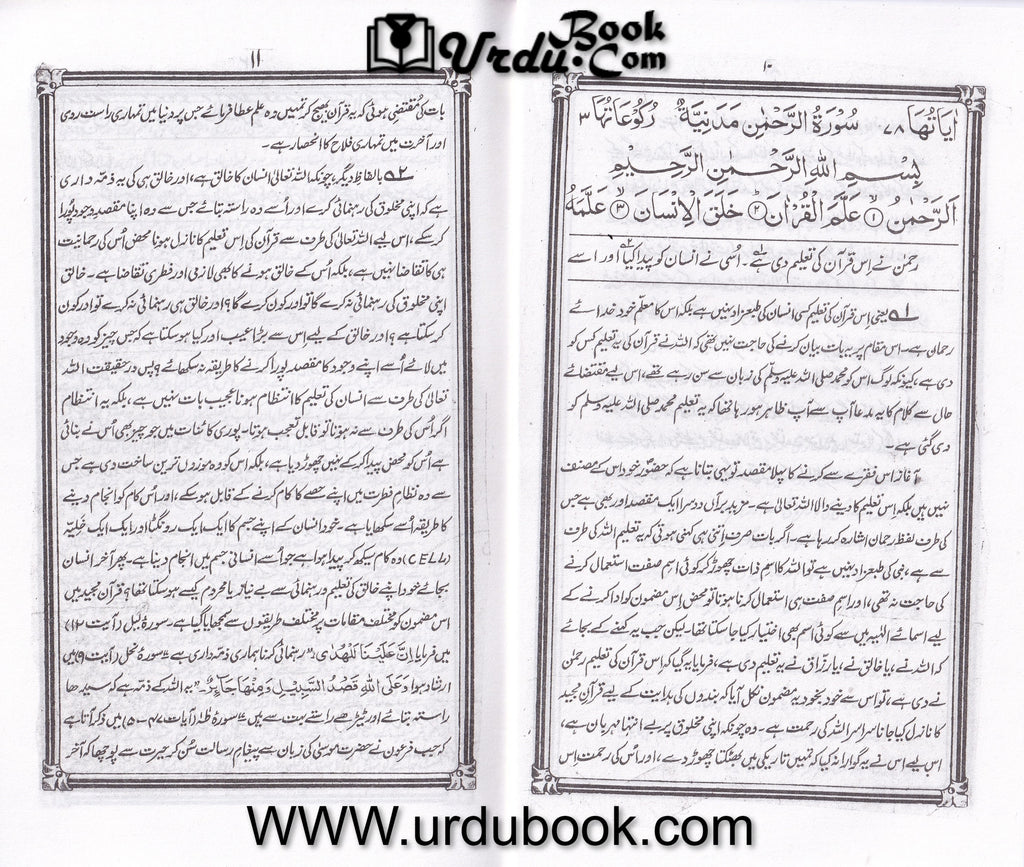 UrduBook.Com
۱۰
اٰیَاتُهَا ۷۸ سُوْرَةُ الرَّحْمٰنِ مَدَنِیَّةٌ رُكُوْعَاتُهَا ۳
بِسْمِ اللهِ الرَّحْمٰنِ الرَّحِیْمِ
اَلرَّحْمٰنُ ۱ عَلَّمَ الْقُرْاٰنَ ۲ خَلَقَ الْاِنْسَانَ ۳ عَلَّمَهُ
رحمٰن نے اِس قرآن کی تعلیم دی ہے۔ اُسی نے انسان کو پیدا کیا اور اسے
۱ یعنی اِس قرآن کی تعلیم کسی انسان کی طبعزاد نہیں ہے بلکہ اس کا معلّم خود خدائے
رحمان ہے۔ اس مقام پر یہ بات بیان کرنے کی حاجت نہیں تھی کہ اللہ نے قرآن کی یہ تعلیم کس کو
دی ہے، کیونکہ لوگ اس کو محمد صلی اللہ علیہ وسلم کی زبان سے سن رہے تھے، اس لیے مقتضائے
حال سے کلام کا یہ مدعا آپ سے آپ ظاہر ہو رہا تھا کہ یہ تعلیم محمد صلی اللہ علیہ وسلم کو
دی گئی ہے۔
آغاز اس فقرے سے کرنے کا پہلا مقصد تو یہی بتانا ہے کہ حضورؐ خود اس کے مصنف
نہیں ہیں بلکہ اِس تعلیم کا دینے والا اللہ تعالیٰ ہے۔ مزید برآں دوسرا ایک مقصد اور بھی ہے جس
کی طرف لفظ رحمان اشارہ کر رہا ہے۔ اگر بات صرف اتنی ہی کہنی ہوتی کہ یہ تعلیم اللہ کی طرف
سے ہے، نبی کی طبعزاد نہیں ہے تو اللہ کا اسمِ ذات چھوڑ کر کوئی اسمِ صفت استعمال کرنے
کی حاجت نہ تھی، اور اسمِ صفت ہی استعمال کرنا ہوتا تو محض اِس مضمون کو ادا کرنے کے
لیے اسمائے الٰہیہ میں سے کوئی اسم بھی اختیار کیا جا سکتا تھا۔ لیکن جب یہ کہنے کے بجائے
کہ اللہ نے، یا خالق نے، یا رزاق نے یہ تعلیم دی ہے، فرمایا یہ گیا کہ اس قرآن کی تعلیم رحمٰن
نے دی ہے، تو اس سے خود بخود یہ مضمون نکل آیا کہ بندوں کی ہدایت کے لیے قرآن مجید
کا نازل کیا جانا سراسر اللہ کی رحمت ہے۔ وہ چونکہ اپنی مخلوق پر بے انتہا مہربان ہے،
اس لیے اس نے یہ گوارا نہ کیا کہ تمہیں تاریکی میں بھٹکتا چھوڑ دے، اور اُس کی رحمت اِس
۱۱
بات کی مُقتضی ہوئی کہ یہ قرآن بھیج کر تمہیں وہ علم عطا فرمائے جس پر دنیا میں تمہاری راست روی
اور آخرت میں تمہاری فلاح کا انحصار ہے۔
۲ بالفاظِ دیگر، چونکہ اللہ تعالیٰ انسان کا خالق ہے، اور خالق ہی کی یہ ذمّہ داری
ہے کہ اپنی مخلوق کی رہنمائی کرے اور اُسے وہ راستہ بتائے جس سے وہ اپنا مقصدِ وجود پورا
کر سکے، اس لیے اللہ تعالیٰ کی طرف سے قرآن کی اِس تعلیم کا نازل ہونا محض اُس کی رحمانیت
ہی کا تقاضا نہیں ہے، بلکہ اُس کے خالق ہونے کا بھی لازمی اور فطری تقاضا ہے۔ خالق
اپنی مخلوق کی رہنمائی نہ کرے گا تو اور کون کرے گا؟ اور خالق ہی رہنمائی نہ کرے تو اور کون
کر سکتا ہے؟ اور خالق کے لیے اِس سے بڑا عیب اور کیا ہو سکتا ہے کہ جس چیز کو وہ وجود
میں لائے اُسے اپنے وجود کا مقصد پورا کرنے کا طریقہ نہ سکھائے؟ پس درحقیقت اللہ
تعالیٰ کی طرف سے انسان کی تعلیم کا انتظام ہونا عجیب بات نہیں ہے، بلکہ یہ انتظام
اگر اُس کی طرف سے نہ ہوتا تو قابلِ تعجب ہوتا۔ پوری کائنات میں جو چیز بھی اُس نے بنائی
ہے اُس کو محض پیدا کر کے نہیں چھوڑ دیا ہے، بلکہ اس کو وہ موزوں ترین ساخت دی ہے جس
سے وہ نظامِ فطرت میں اپنے حصے کا کام کرنے کے قابل ہو سکے، اور اُس کام کو انجام دینے
کا طریقہ اُسے سکھایا ہے۔ خود انسان کے اپنے جسم کا ایک ایک رونگٹا اور ایک ایک خلیّہ
(CELL) وہ کام سیکھ کر پیدا ہوا ہے جو اُسے انسانی جسم میں انجام دینا ہے۔ پھر آخر انسان
بجائے خود اپنے خالق کی تعلیم و رہنمائی سے بے نیاز یا محروم کیسے ہو سکتا تھا؟ قرآن مجید میں
اس مضمون کو مختلف مقامات پر مختلف طریقوں سے سمجھایا گیا ہے۔ سورۂ لیل (آیت ۱۲)
میں فرمایا اِنَّ عَلَیْنَا لَلْهُدٰی: "رہنمائی کرنا ہماری ذمّہ داری ہے"۔ سورۂ نحل (آیت ۹) میں
ارشاد ہوا وَعَلَی اللهِ قَصْدُ السَّبِیْلِ وَمِنْهَا جَآئِرٌ۔ "یہ اللہ کے ذمّہ ہے کہ سیدھا
راستہ بتائے اور ٹیڑھے راستے بہت سے ہیں"۔ سورۂ طٰہٰ (آیات ۴۷۔۵۰) میں ذکر آتا ہے
کہ جب فرعون نے حضرت موسیٰ کی زبان سے پیغامِ رسالت سُن کر حیرت سے پوچھا کہ آخر
WWW.urdubook.com